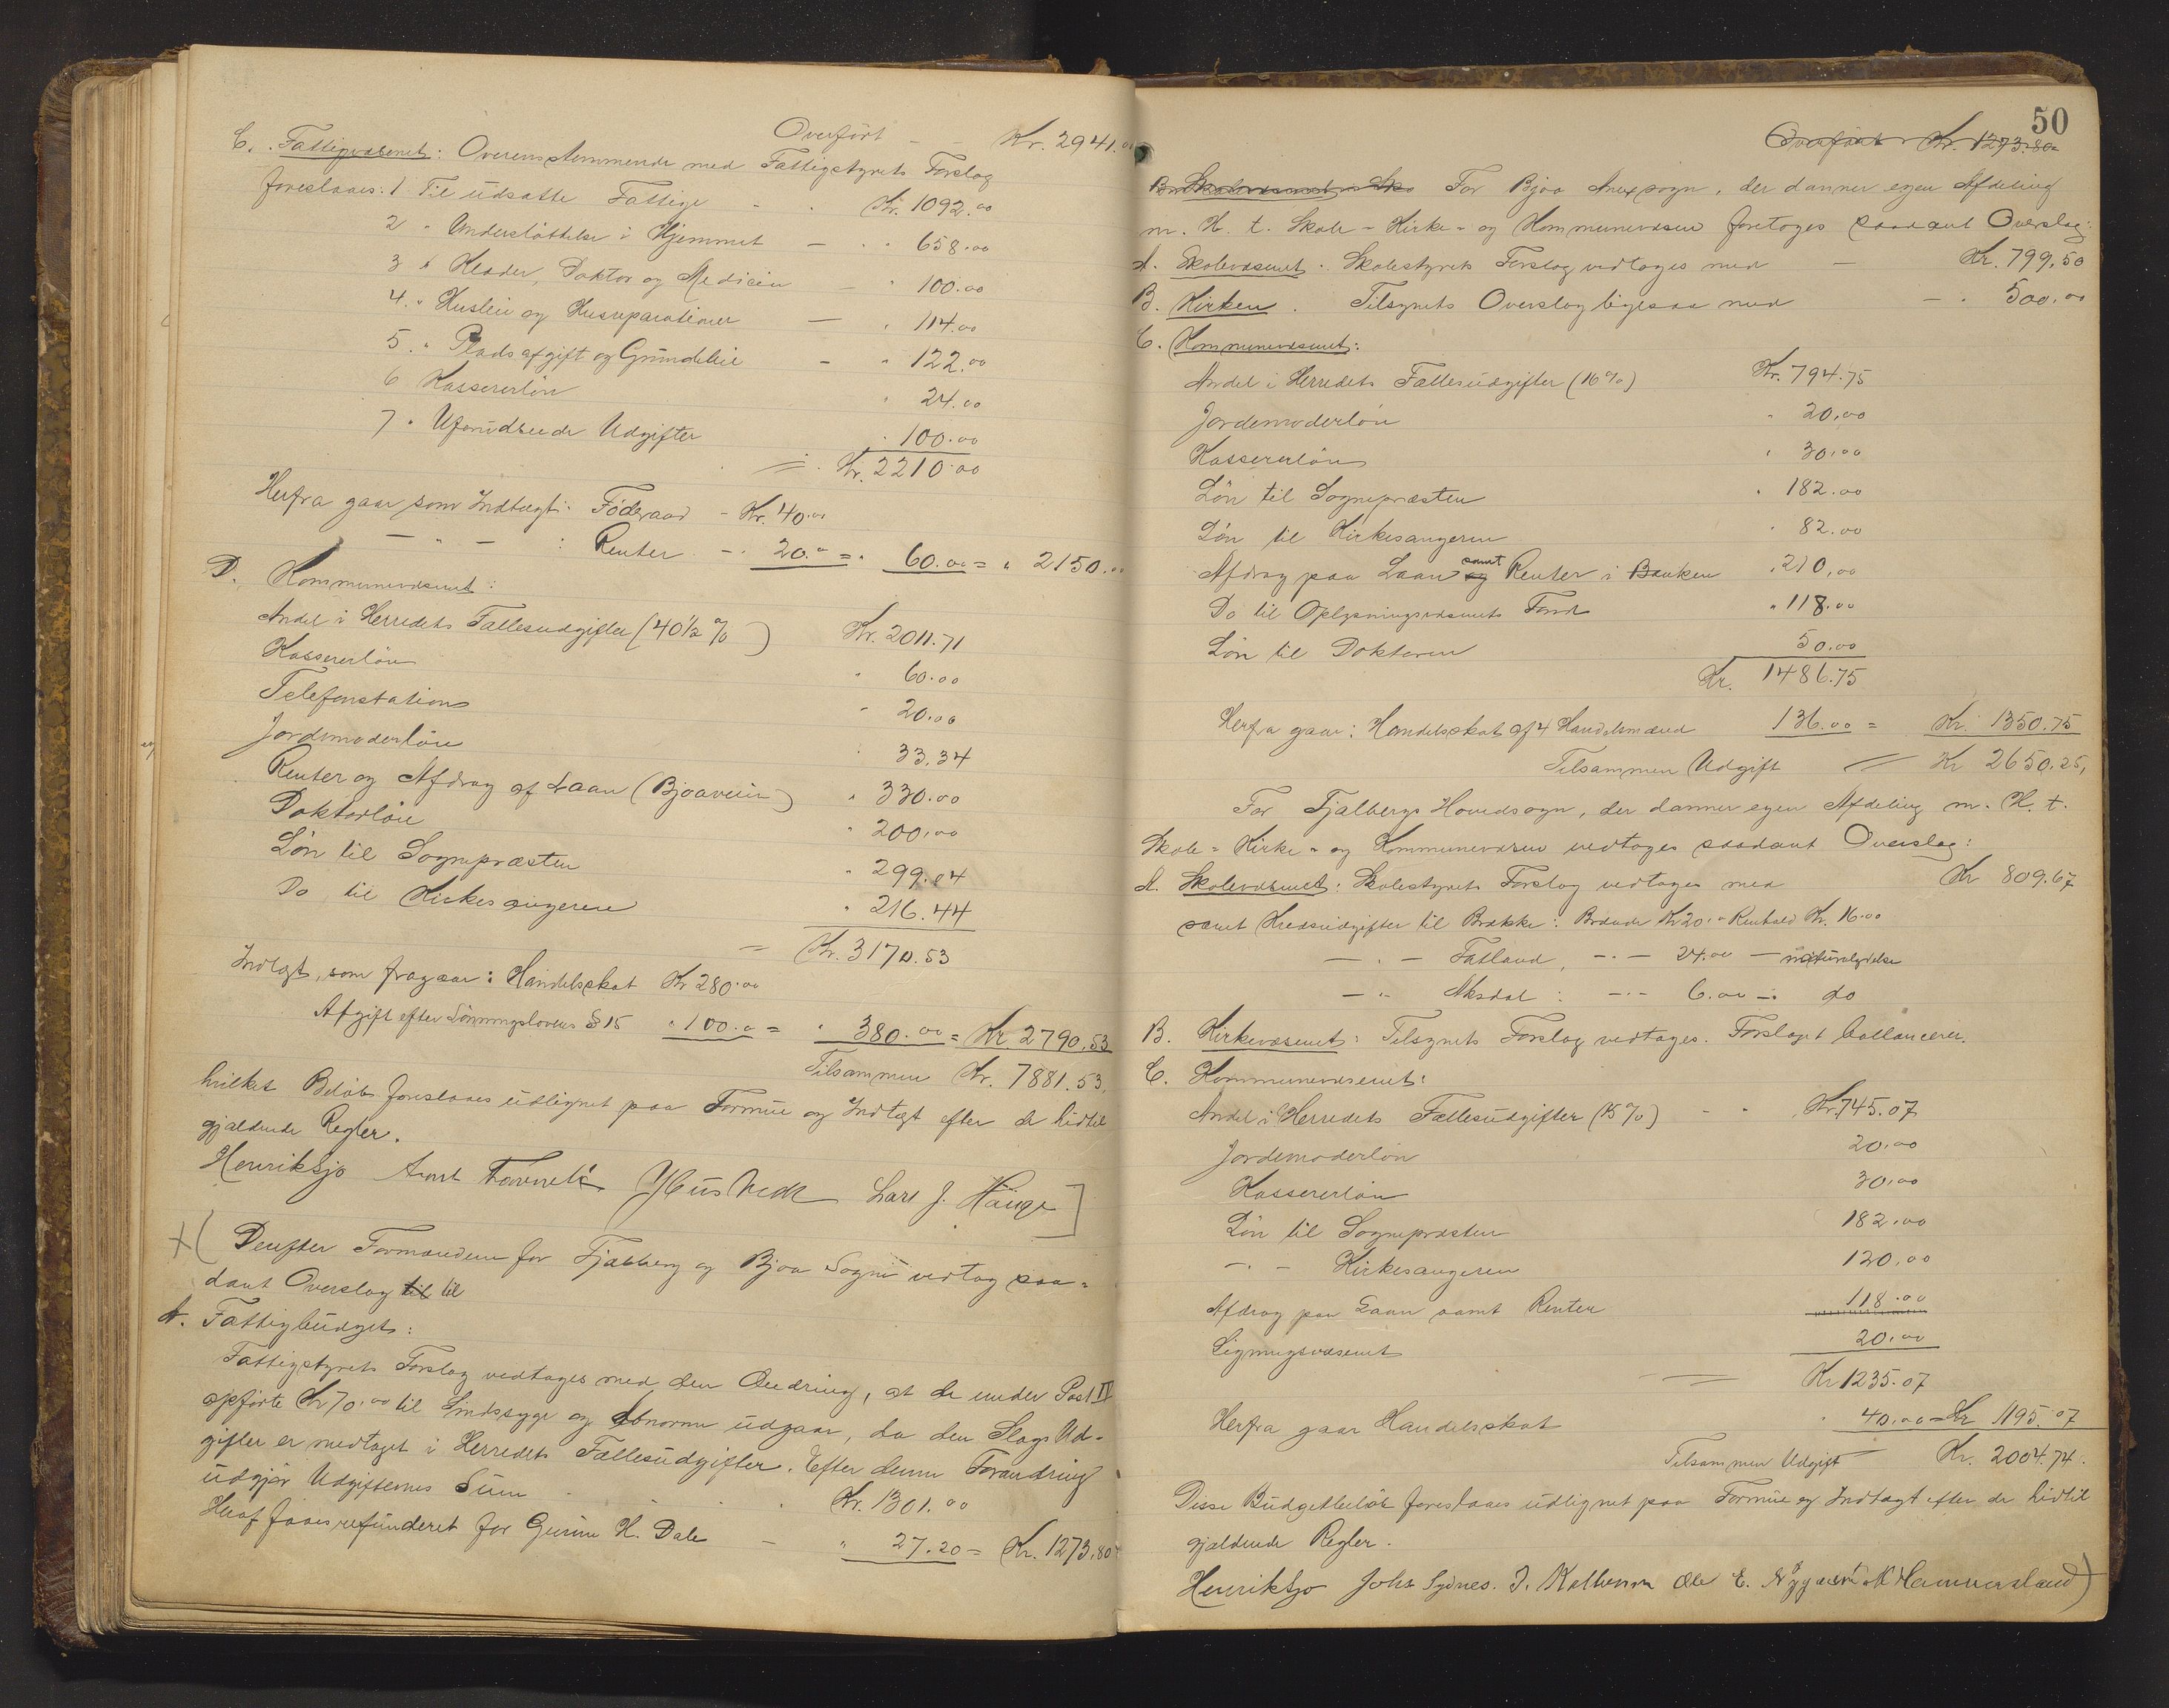 Overført - - Kr. 2941.00
C. Fattigvæsenet: Overensstemmende med Fattigstyrets Forslag
foreslaaes: 1 Til udsatte Fattige - . Kr. 1092.00
2 " Understöttelse i Hjemmet - " 658.00
3 " Klæder, Doktor og Medicin - " 100.00
4. " Husleie og Husreparationer - " 114.00
5. " Pladsafgift og Grundleie - " 122.00
6 Kassererlön " 24.00
7 " Uforudseede Udgifter " 100.00
= Kr. 2210.00
Herfra gaar som Indtægt: Föderaad - Kr. 40.00
- " - : Renter - " 20.00 = " 60.00 = " 2150.00
D. Kommunevæsenet:
Andel i Herredets Fællesudgifter (40 1/2 %) Kr. 2011.71
Kassererlön " 60.00
Telefonstation " 20.00
Jordemoderlön " 33.34
Renter og Afdrag af Laan (Bjoaveien) " 330.00
Doktorlön " 200.00
Lön til Sognepræsten " 299.04
Do til Kirkesangeren " 216.44
= Kr. 3170.53
Indtægt, som fragaar: Handelsskat Kr 280.00
Afgift efter Lönningslovens § 15 " 100.00 = " 380.00 = Kr. 2790.53
Tilsammen Kr. 7881.53,
hvilket Belöb foreslaaes udlignet paa Formue og Indtægt efter de hidtil
gjældende Regler.
Henriksjo Lars J. Hauge ]
+( Derefter Formændene for Fjælberg og Bjoa Sogne vedtog saa-
dant Overslag til til
A. Fattigbudget:
Fattigstyrets Forslag vedtages med den Ændring, at de under Post II
opförte Kr 70.00 til Sindssyge og Abnorme udgaar, da den Slags Ud-
gifter er medtaget i Herredets Fællesudgifter. Efter denne Forandring
udgjör Udgifternes Sum - " . . Kr. 1301.00
Heraf faaes refunderet for Gurine H. Dale - " 27.20 = Kr. 1273.80
50
Overført Kr. 1273.80
B. Skolevæsenet Sko For Bjoa Anexsogn, der danner egen Afdeling
m. H. t. Skole- Kirke- og Kommunevæsen foretoges saadant Overslag:
A. Skolevæsenet. Skolestyrets Forslag vedtages med - Kr. 799.50
B. Kirken. Tilsynets Overslag ligesaa med - " 500.00
C. Kommunevæsenet:
Andel i Herredets Fællesudgifter (16%) Kr. 794.75
Jordemoderlön " 20.00
Kassererlön " 30.00
Lön til Sognepræsten " 182.00
Lön til Kirkesangeren " 82.00
Afdrag paa Laan og samt Renter i Banken " 210.00
Do til Oplysningsvæsenets Fond " 118.00
Lön til Doktoren 50.00
Kr. 1486.75
Herfra gaar: Handelsskat af 4 Handelsmænd 136.00 = Kr. 1350.75
Tilsammen Udgift = Kr 2650.25,
For Fjælbergs Hovedsogn, der danner egen Afdeling m. H. t.
Skole- Kirke- og Kommunevæsen vedtoges saadant Overslag:
A. Skolevæsenet: Skolestyrets Forslag vedtages med Kr 809.67
samt Kredsudgifter til Brække: Brænde Kr 20.00 Renhold Kr. 16.00
- " - Fatland, - " - 24.00 - naturalydelse
- " - Aksdal: - " - 6.00 - do
B. Kirkevæsenet: Tilsynets Forslag vedtages. Forslaget ballancerer.
C. Kommunevæsenet:
Andel i Herredets Fællesudgifter (15%) - " Kr. 745.07
Jordemoderlön 20.00
Kassererlön 30.00
Lön til Sognepræsten 182.00
- " - Kirkesangeren 120.00
Afdrag paa Laan samt Renter 118.00
Ligningsvæsenet 20.00
Kr 1235.07
Herfra gaar Handelsskat " 40.00 = Kr 1195.07
Tilsammen Udgift Kr. 2004.74.
Disse Budgetbelöb foreslaaes udlignet paa Formue og Indtægt efter de hidtil
gjældende Regler.
Henriksjo Johs Sydnes. Ole E. M Hammersland)